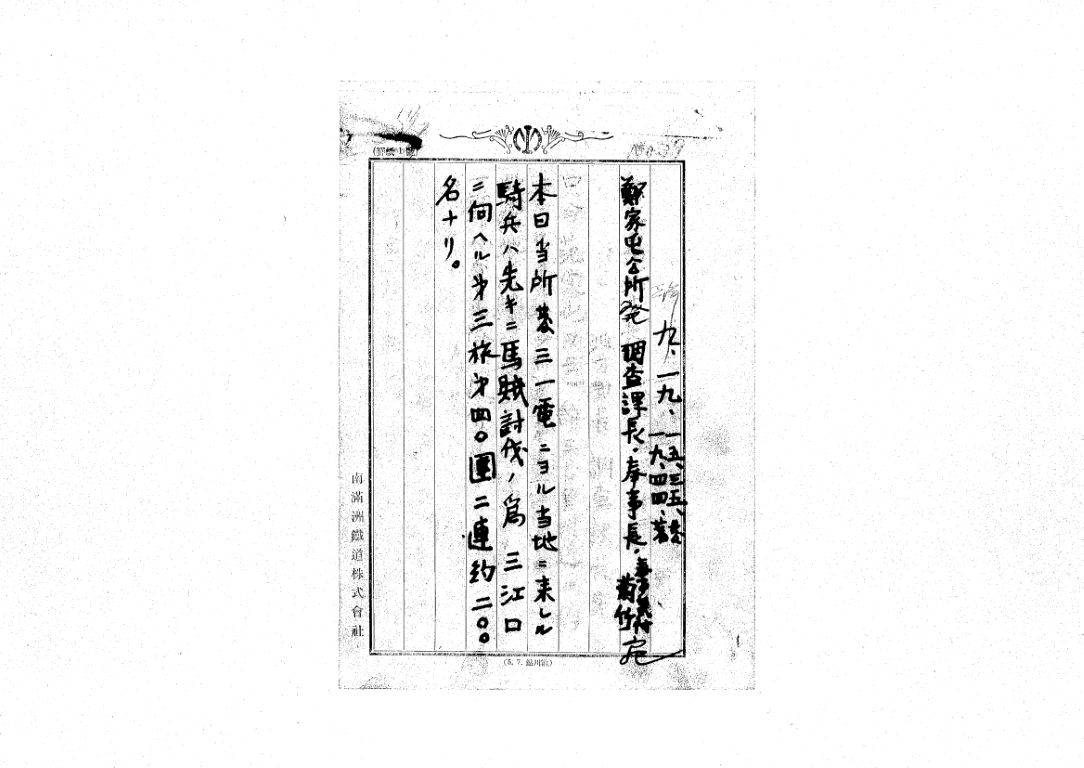 九、一九、一五、三五、発
一九、四四、著
鄭家屯公所発 調査課長、奉事長、
菊竹
宛
本日当所発三一電ニヨル当地ニ来レル
騎兵ハ先キニ馬賊討伐ノ為三江口
ニ向ヘル第三旅第四〇團二連約二〇〇
名ナリ。
南滿洲鐵道株式會社